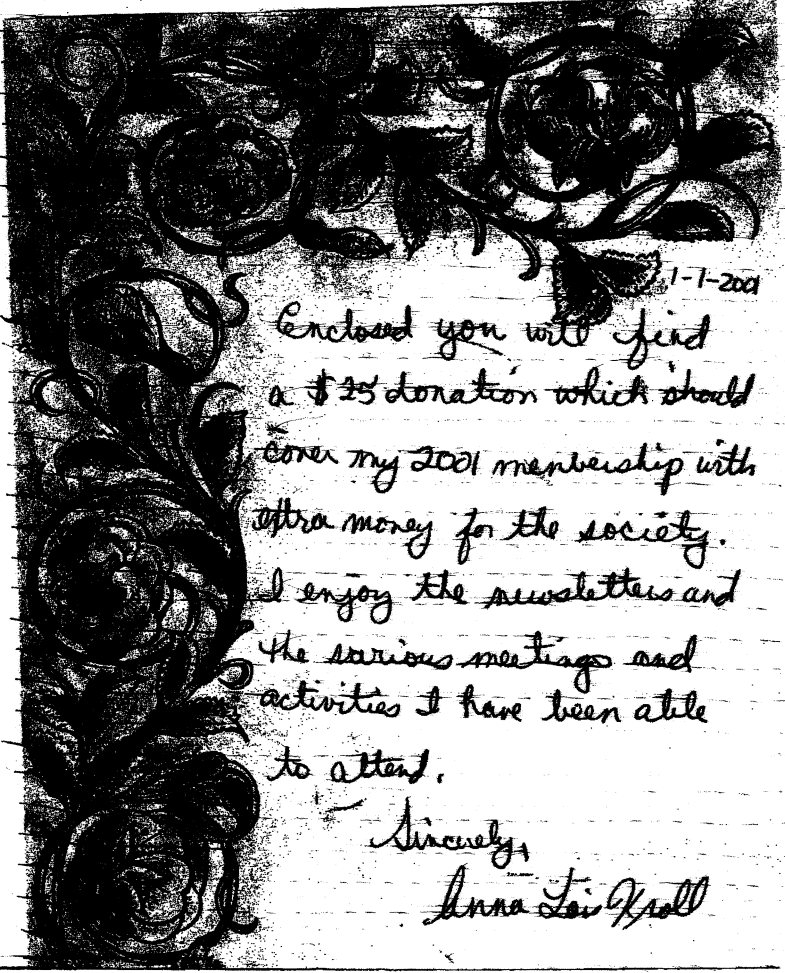 1-1-2001
Enclosed you will find
a $25 donation which should
cover my 2001 membership with
extra money for the society.
I enjoy the newsletters and
the various meetings and
activities I have been able
to attend.
Sincerely,
Anna Lois Kroll